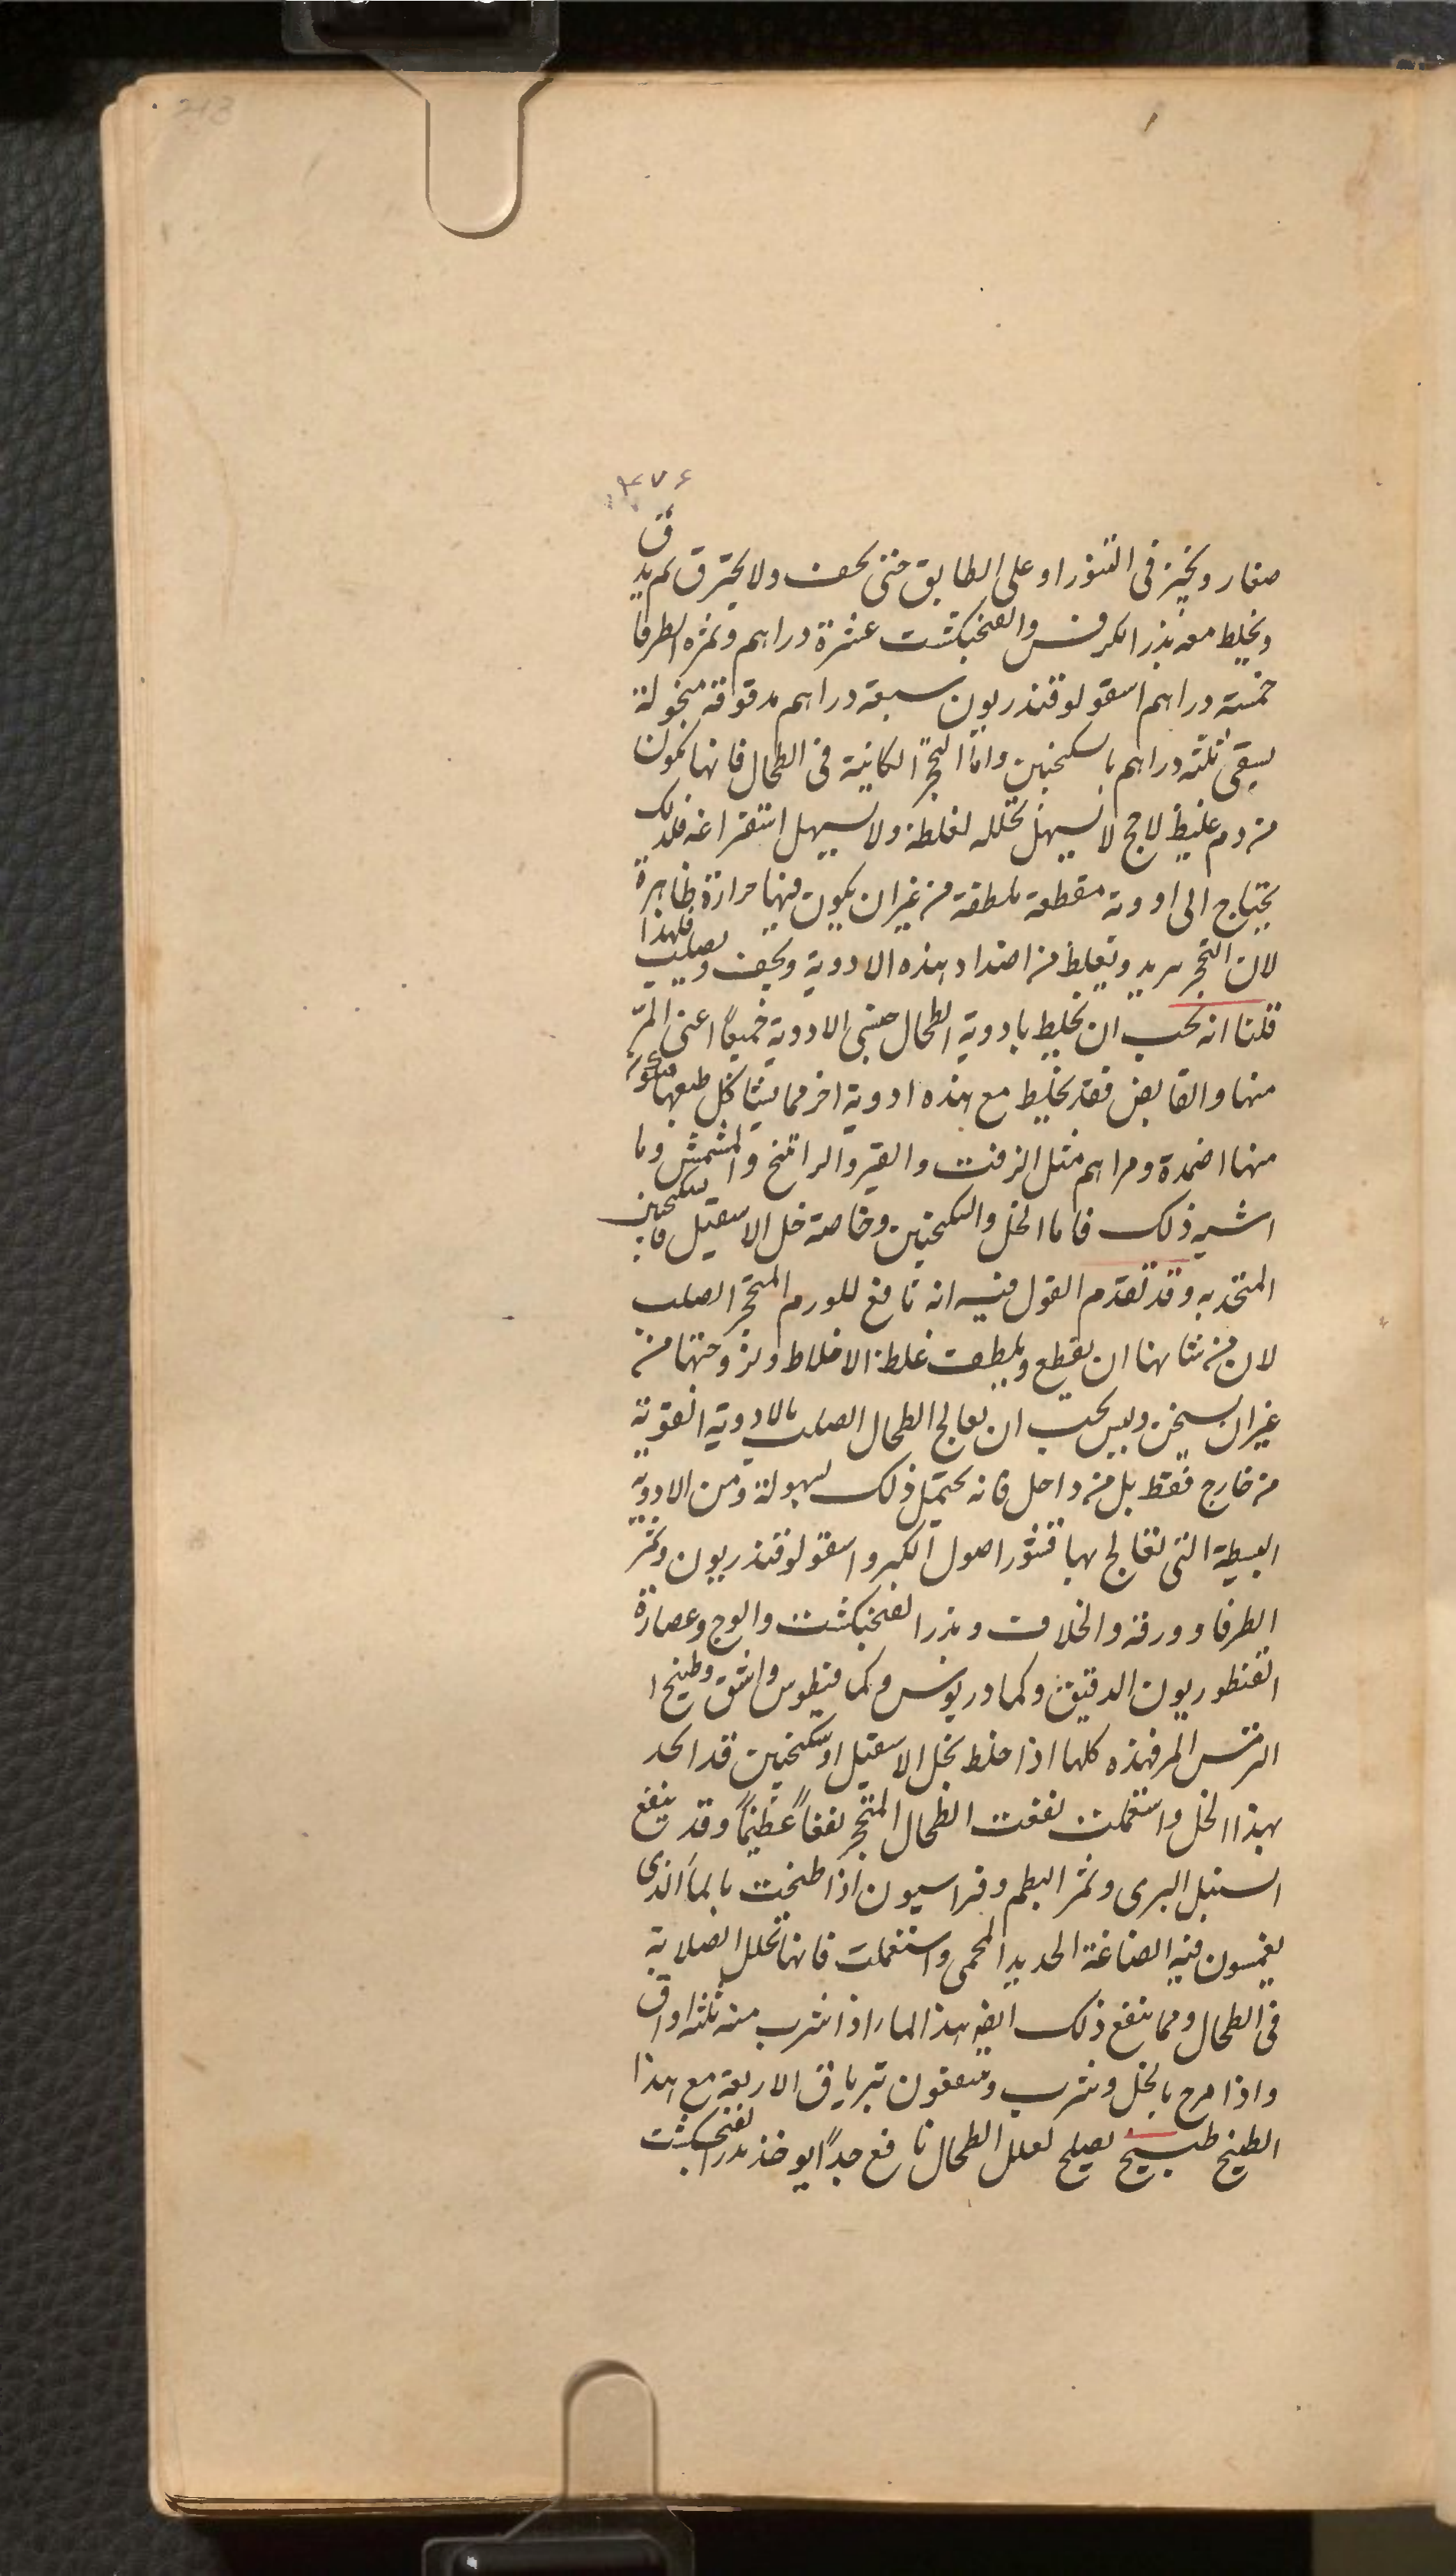 213
۳۷۶
صغار ويخبز فى التنور او على الطابق حتى يجف ولا يحترق ثم يدق
ويخلط معه بذر الكرفس والفنجنكشت عشرة دراهم وثمرة الطرفا
خمسة دراهم اسقولوقندريون سبعة دراهم مدقوقة منخولة
يسقى ثلثة دراهم بالسكنجبين واما التحجر الكائنة فى الطحال فانها تكون
من دم غليظ لاحج لا يسهل تحلله لغلظه ولا يسهل استفراغه فلذلك
يحتاج الى ادوية مقطعة ملطفة من غير ان يكون فيها حرارة ظاهرة
لان التحجر يريد ويغلظ من اضداد هذه الادوية ويجف ويصلب فلهذا
قلنا انه يجب ان يخلط بادوية الطحال جنسى الادوية جميعًا اعنى المر
منها والقابض فقد يخلط مع هذه ادوية اخر مما يشاكل طبعها
منها اضمدة ومراهم مثل الزفت والقير والراتنج والمشمش وما
اشبه ذلك فاما الخل والسكنجبين وخاصة خل الاسقيل والسكنجبين
المتخذ به وقد تقدم القول فيه انه نافع للورم المتحجر الصلب
لان من شانها ان يقطع ويلطف غلظ الاخلاط ولزوجتها من
غير ان يسخن وليس يجب ان يعالج الطحال الصلب بالادوية القوية
من خارج فقط بل من داخل فانه يحتمل ذلك بسهولة ومن الادوية
البسيطة التى تعالج بها قشور اصول الكبر واسقولوقندريون وثمر
الطرفا وورقه والخلاف وبذر الفنجنكشت والوج وعصارة
القنطوريون الدقيق وكمادريوس وكمافيطوس واشق وطبيخ ا
الترمس المر فهذه كلها اذا خلط بخل الاسقيل او سكنجبين قد اتخذ
بهذا الخل واستعملت نفعت الطحال المتحجر نفعًا عظيمًا وقد ينفع
السنبل البرى وثمر البطم وفراسيون اذا طبخت بالماء الذى
يغمسون فيه الصاغة الحديد المحمى واستعملت فانها تحلل الصلابة
فى الطحال ومما ينفع ذلك ايضا هذا الماء اذا شرب منه ثلثة اواق
واذا مزج بالخل وشرب ويسقون ترياق الاربعة مع هذا
الطبيخ طبيخ يصلح لعلل الطحال نافع جدًا يوخذ بذر الفنجنكشت